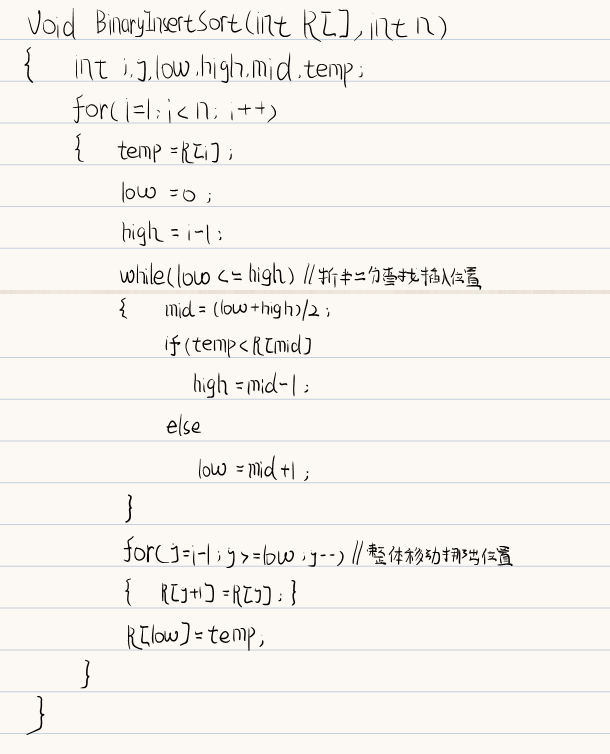 Void BinaryInsertSort(int R[],int n)
{ int i,j,low,high,mid,temp;
for(i=1;i<n;i++)
{ temp=R[i];
low=0;
high=i-1;
while(low<=high) //折半二分查找插入位置
{ mid=(low+high)/2;
if(temp<R[mid]
high=mid-1;
else
low=mid+1;
}
for(j=i-1;j>=low;j--) //整体移动挪出位置
{ R[j+1]=R[j];}
R[low]=temp;
}
}